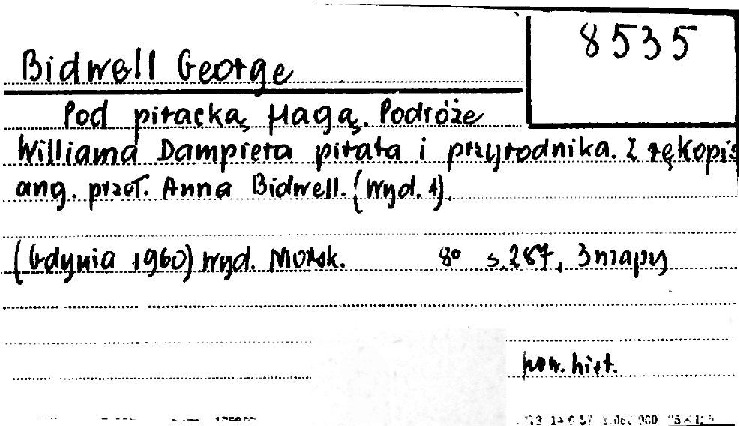 8535
Bidwell George
Pod piracką flagą. Podróże
Williama Dampiera pirata i przyrodnika. Z rękopis
ang. przeł. Anna Bidwell. (Wyd. 1).
(Gdynia 1960) Wyd. Morsk. 8° s. 287, 3 mapy
pow. hist.